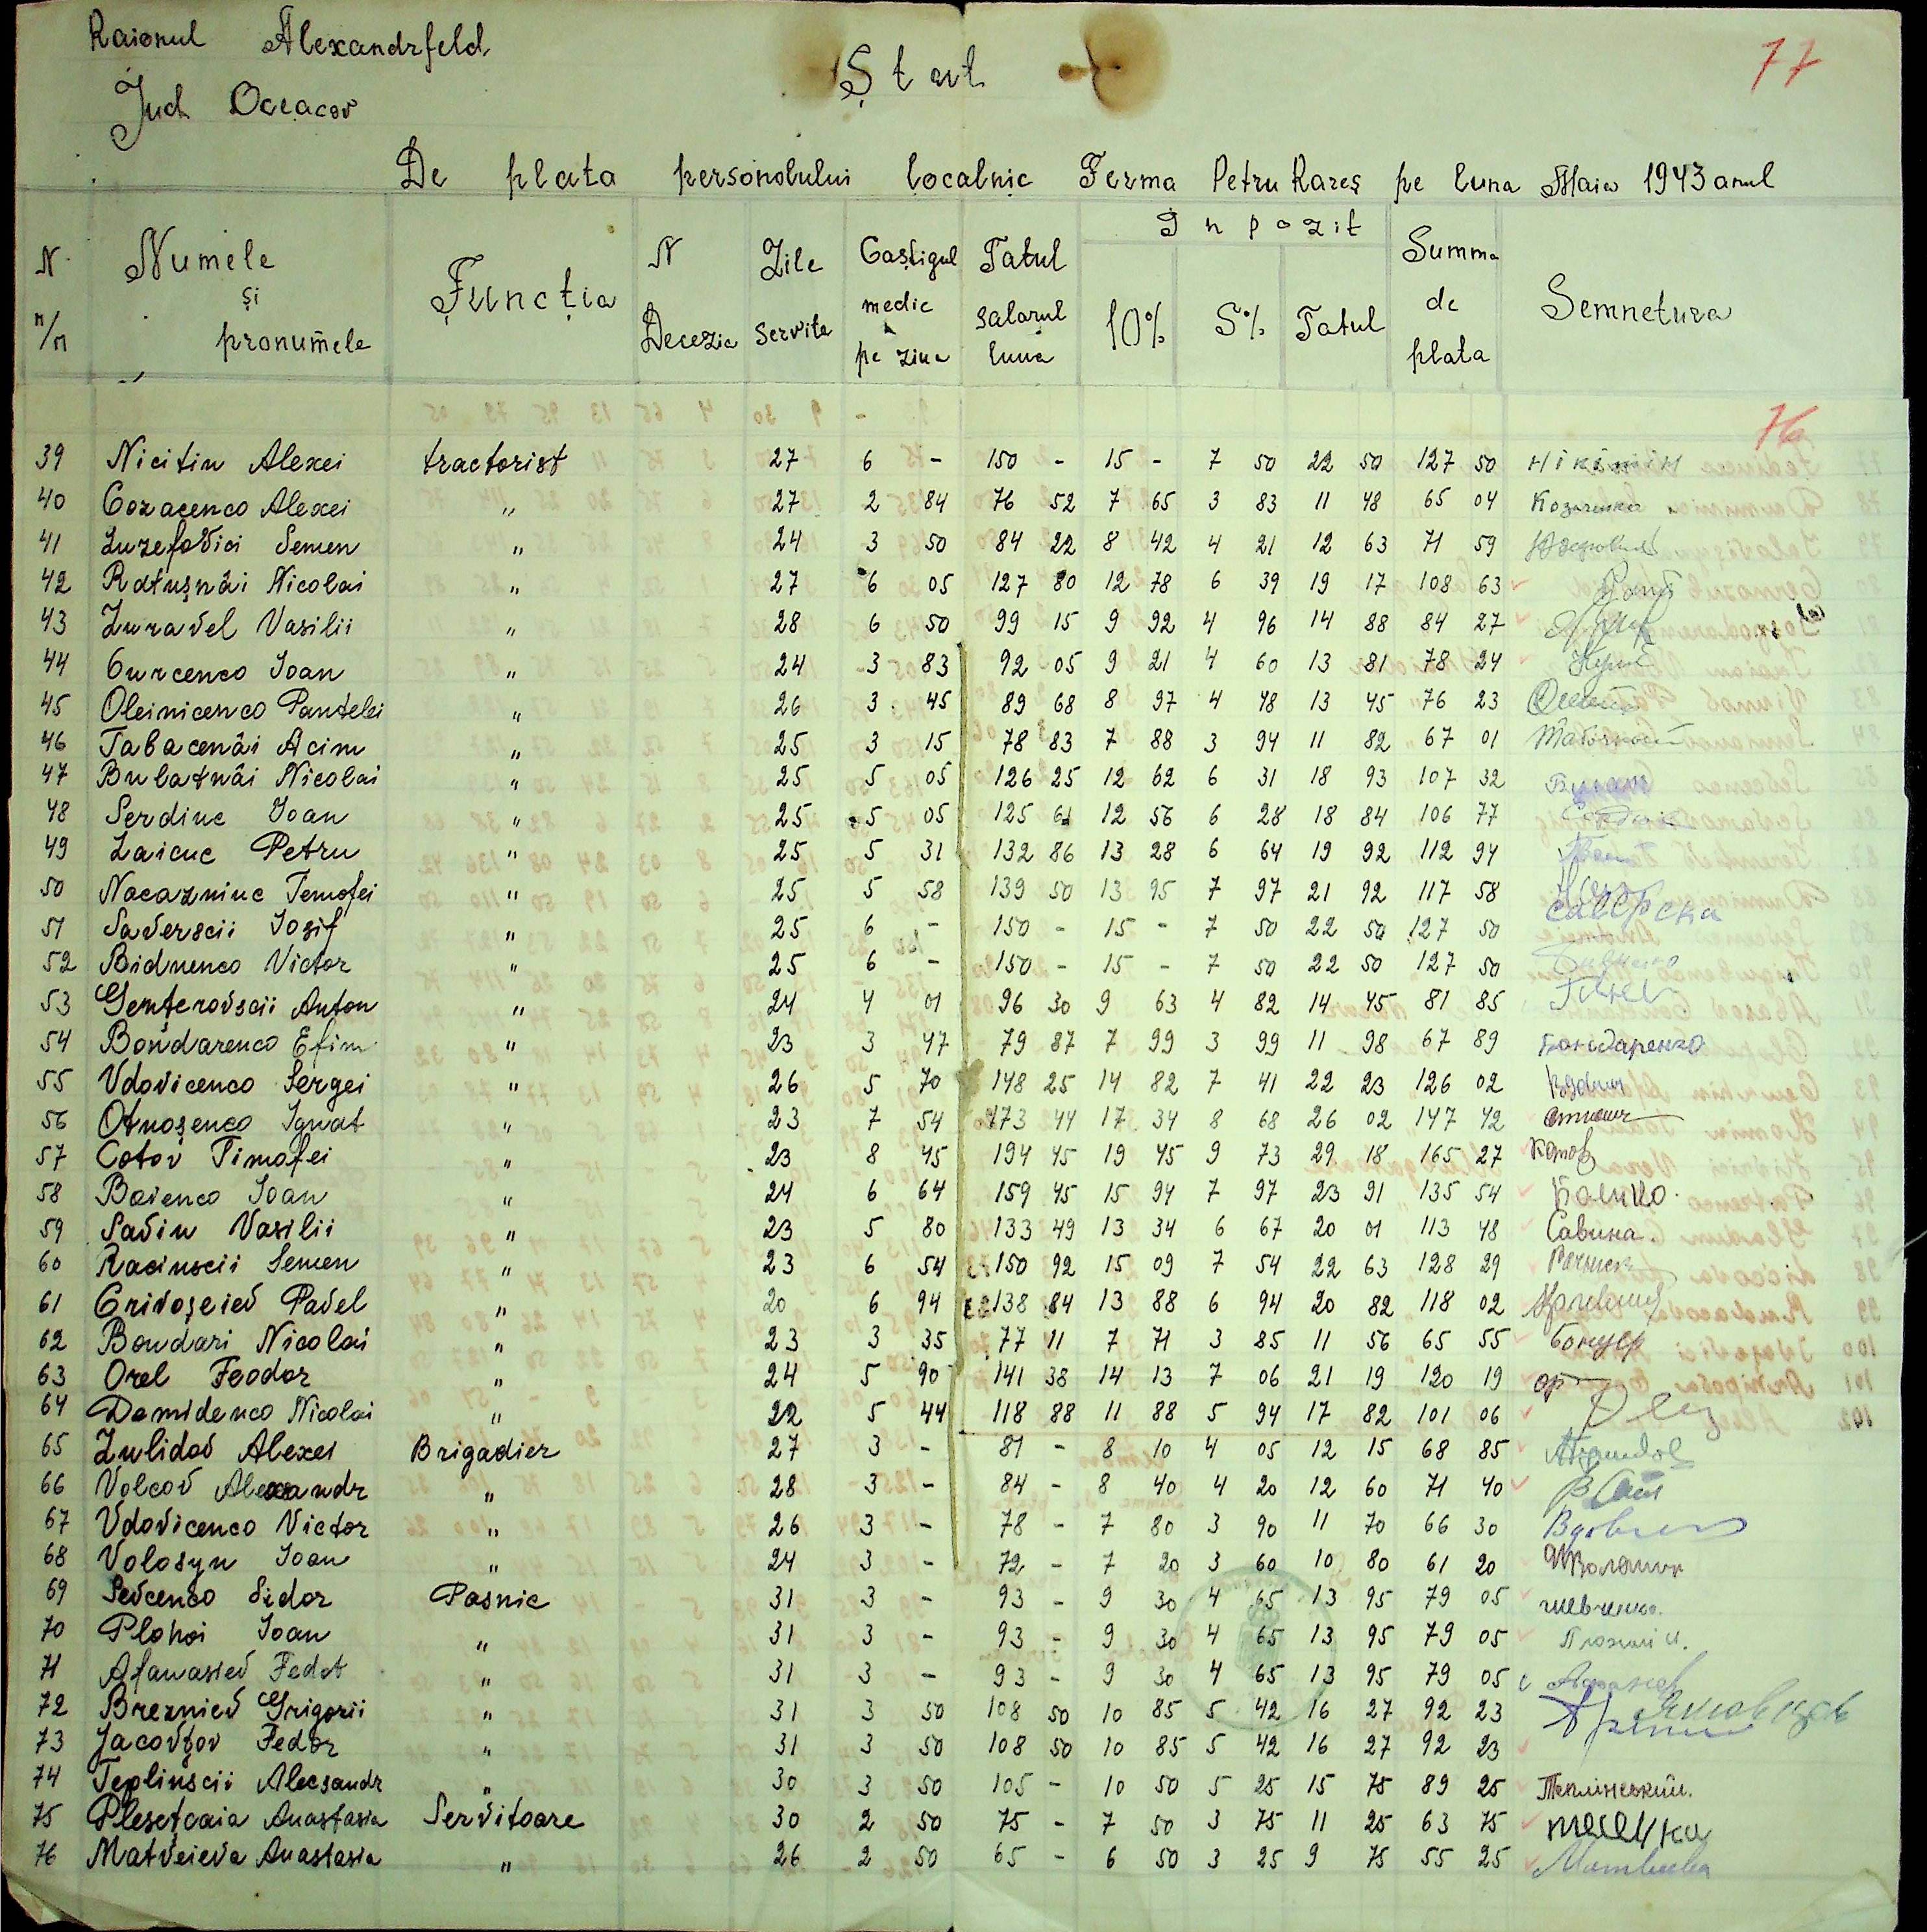 Raionul Alexandrfeld
Jud Oceacov
Ștat
77
De plata personolului localnic Ferma Petru Rareș pe luna Maia 1943 anul
N n/n Numele și pronumele Funcția N Decezia Zile Servite Caștigul medic pe ziua Tatul salarul luna Inpozit 10% 5% Tatul Summa de plata Semnetura
76
39 Nicitin Alexei tractorist 27 6 - 150 - 15 - 7 50 22 50 127 50 Нікітін
40 Cozacenco Alexei " 27 2 84 76 52 7 65 3 83 11 48 65 04
41 Luzefovici Semen " 24 3 50 84 22 8 42 4 21 12 63 71 59
42 Ratușnâi Nicolai " 27 6 05 127 80 12 78 6 39 19 17 108 63
43 Zuravel Vasilii " 28 6 50 99 15 9 92 4 96 14 88 84 27
44 Curcenco Ioan " 24 3 83 92 05 9 21 4 60 13 81 78 24
45 Oleinicenco Pantelei " 26 3 45 89 68 8 97 4 48 13 45 76 23
46 Tabacenâi Acim " 25 3 15 78 83 7 88 3 94 11 82 67 01
47 Bulatnâi Nicolai " 25 5 05 126 25 12 62 6 31 18 93 107 32
48 Serdiuc Ioan " 25 5 05 125 61 12 56 6 28 18 84 106 77
49 Zaicuc Petru " 25 5 31 132 86 13 28 6 64 19 92 112 94
50 Nacazniuc Temofei " 25 5 58 139 50 13 95 7 97 21 92 117 58
51 Saverscii Iosif " 25 6 - 150 - 15 - 7 50 22 50 127 50
52 Bidnenco Victor " 25 6 - 150 - 15 - 7 50 22 50 127 50
53 Gențerovscii Anton " 24 4 01 96 30 9 63 4 82 14 45 81 85
54 Bondarenco Efim " 23 3 47 79 87 7 99 3 99 11 98 67 89 Бондаренко
55 Vdovicenco Sergei " 26 5 70 148 25 14 82 7 41 22 23 126 02
56 Otnoșenco Ignat " 23 7 54 173 44 17 34 8 68 26 02 147 42
57 Cotov Timofei " 23 8 45 194 45 19 45 9 73 29 18 165 27 Котов
58 Boienco Ioan " 24 6 64 159 45 15 94 7 97 23 91 135 54
59 Savin Vasilii " 23 5 80 133 49 13 34 6 67 20 01 113 48 Савина.
60 Racinscii Semen " 23 6 54 150 92 15 09 7 54 22 63 128 29
61 Crivoșeiev Pavel " 20 6 94 138 84 13 88 6 94 20 82 118 02
62 Bondari Nicolai " 23 3 35 77 11 7 71 3 85 11 56 65 55
63 Orel Feodor " 24 5 90 141 38 14 13 7 06 21 19 120 19 ор
64 Demidenco Nicolai " 22 5 44 118 88 11 88 5 94 17 82 101 06
65 Zulidov Alexei Brigadier 27 3 - 81 - 8 10 4 05 12 15 68 85
66 Volcov Alexandr " 28 3 - 84 - 8 40 4 20 12 60 71 40
67 Vdovicenco Victor " 26 3 - 78 - 7 80 3 90 11 70 66 30
68 Volosyn Ioan " 24 3 - 72 - 7 20 3 60 10 80 61 20
69 Sevcenco Sidor Pasnic 31 3 - 93 - 9 30 4 65 13 95 79 05 шевченко.
70 Plohoi Ioan " 31 3 - 93 - 9 30 4 65 13 95 79 05 Плохий И.
71 Afanasiev Fedot " 31 3 - 93 - 9 30 4 65 13 95 79 05
72 Brezniev Grigorii " 31 3 50 108 50 10 85 5 42 16 27 92 23
73 Jacovțov Fedor " 31 3 50 108 50 10 85 5 42 16 27 92 23
74 Teplinscii Alecsandr " 30 3 50 105 - 10 50 5 25 15 75 89 25 Теплінський.
75 Plesețcaia Anastasia Servitoare 30 2 50 75 - 7 50 3 75 11 25 63 75
76 Matveieva Anastasia " 26 2 50 65 - 6 50 3 25 9 75 55 25